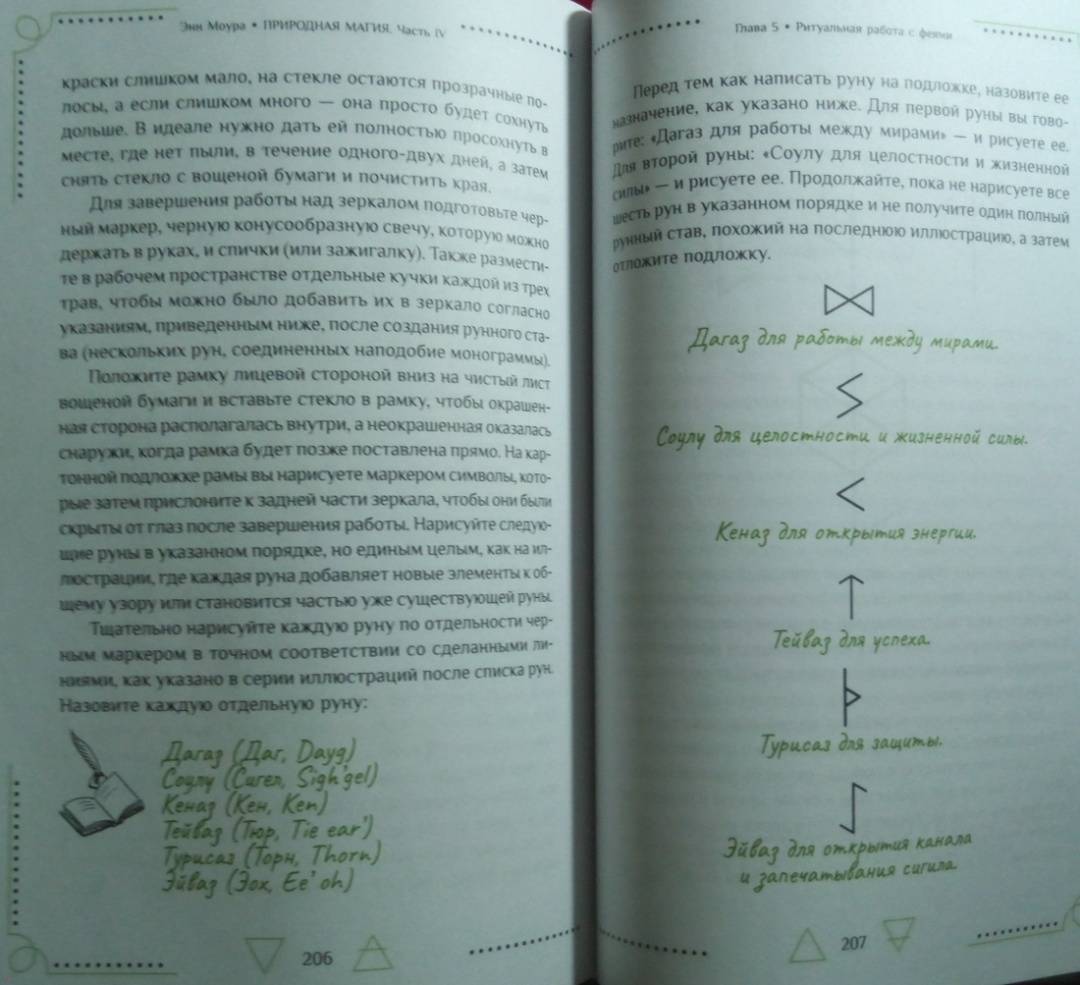 Энн Моура • ПРИРОДНАЯ МАГИЯ. Часть IV
краски слишком мало, на стекле остаются прозрачные по-
лосы, а если слишком много — она просто будет сохнуть
дольше. В идеале нужно дать ей полностью просохнуть в
месте, где нет пыли, в течение одного-двух дней, а затем
снять стекло с вощеной бумаги и почистить края.
Для завершения работы над зеркалом подготовьте чер-
ный маркер, черную конусообразную свечу, которую можно
держать в руках, и спички (или зажигалку). Также размести-
те в рабочем пространстве отдельные кучки каждой из трех
трав, чтобы можно было добавить их в зеркало согласно
указаниям, приведенным ниже, после создания рунного ста-
ва (нескольких рун, соединенных наподобие монограммы).
Положите рамку лицевой стороной вниз на чистый лист
вощеной бумаги и вставьте стекло в рамку, чтобы окрашен-
ная сторона располагалась внутри, а неокрашенная оказалась
снаружи, когда рамка будет позже поставлена прямо. На кар-
тонной подложке рамы вы нарисуете маркером символы, кото-
рые затем прислоните к задней части зеркала, чтобы они были
скрыты от глаз после завершения работы. Нарисуйте следую-
щие руны в указанном порядке, но единым целым, как на ил-
люстрации, где каждая руна добавляет новые элементы к об-
щему узору или становится частью уже существующей руны.
Тщательно нарисуйте каждую руну по отдельности чер-
ным маркером в точном соответствии со сделанными ли-
ниями, как указано в серии иллюстраций после списка рун.
Назовите каждую отдельную руну:
Дагаз (Даг, Dayg)
Соулу (Сигел, Sigh'gel)
Кеназ (Кен, Ken)
Тейваз (Тюр, Tie ear')
Турисаз (Торн, Thorn)
Эйваз (Эох, Ee' oh)
206
Глава 5 • Ритуальная работа с феями
Перед тем как написать руну на подложке, назовите ее
назначение, как указано ниже. Для первой руны вы гово-
рите: «Дагаз для работы между мирами» — и рисуете ее.
Для второй руны: «Соулу для целостности и жизненной
силы» — и рисуете ее. Продолжайте, пока не нарисуете все
шесть рун в указанном порядке и не получите один полный
рунный став, похожий на последнюю иллюстрацию, а затем
отложите подложку.
Дагаз для работы между мирами.
Соулу для целостности и жизненной силы.
Кеназ для открытия энергии.
Тейваз для успеха.
Турисаз для защиты.
Эйваз для открытия канала
и запечатывания сигила.
207